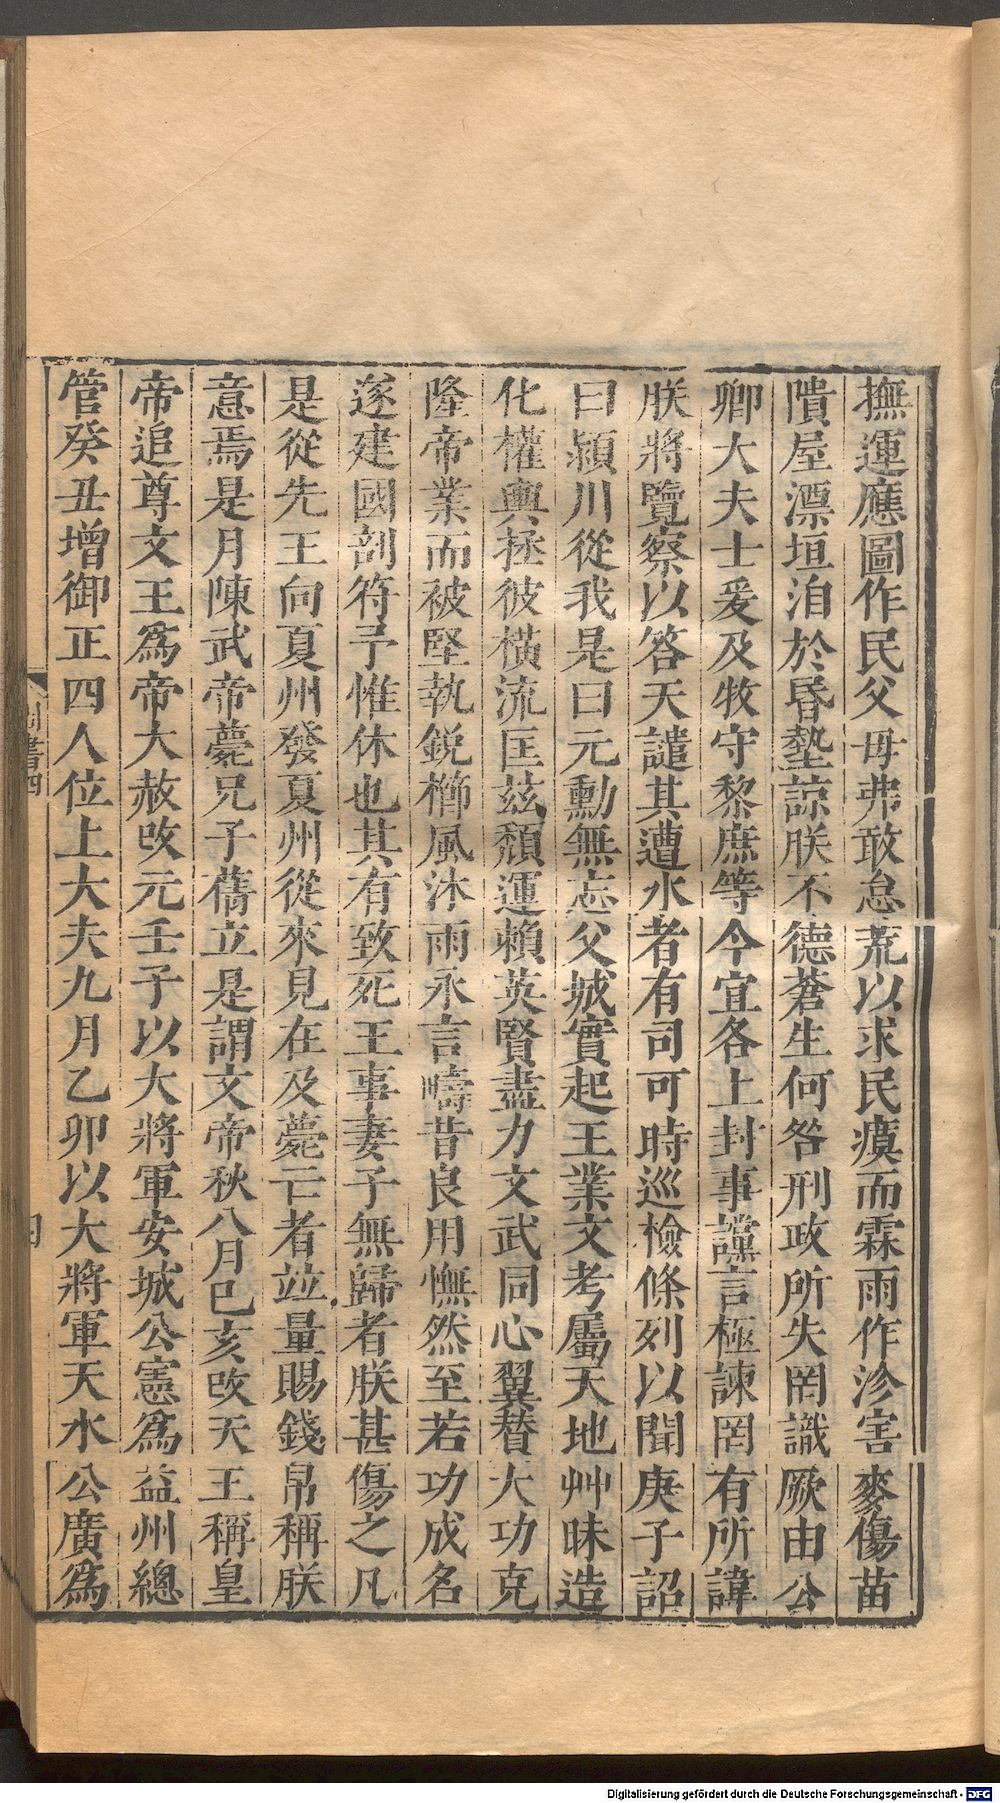 撫運應圖作民父母弗敢怠荒以求民瘼而霖雨作沴害麥傷苗
隤屋漂垣洎於昏墊諒朕不德蒼生何咎刑政所失罔識厥由公
卿大夫士爰及牧守黎庶等今宜各上封事讜言極諫罔有所諱
朕將覽察以答天譴其遭水者有司可時巡檢條列以聞庚子詔
曰潁川從我是曰元勳無忘父城實起王業文考屬天地艸昧造
化權輿拯彼橫流匡茲頹運賴英賢盡力文武同心翼替大功克
隆帝業而被堅執銳櫛風沐雨永言疇昔良用憮然至若功成名
遂建國剖符予惟休也其有致死王事妻子無歸者朕甚傷之凡
是從先王向夏州發夏州從來見在及薨亡者竝量賜錢帛稱朕
意焉是月陳武帝薨兄子蒨立是謂文帝秋八月己亥改天王稱皇
帝追尊文王爲帝大赦改元壬子以大將軍安城公憲爲益州總
管癸丑增御正四人位上大夫九月乙卯以大將軍天水公廣爲
周書四
四
Digitalisierung gefördert durch die Deutsche Forschungsgemeinschaft - DFG